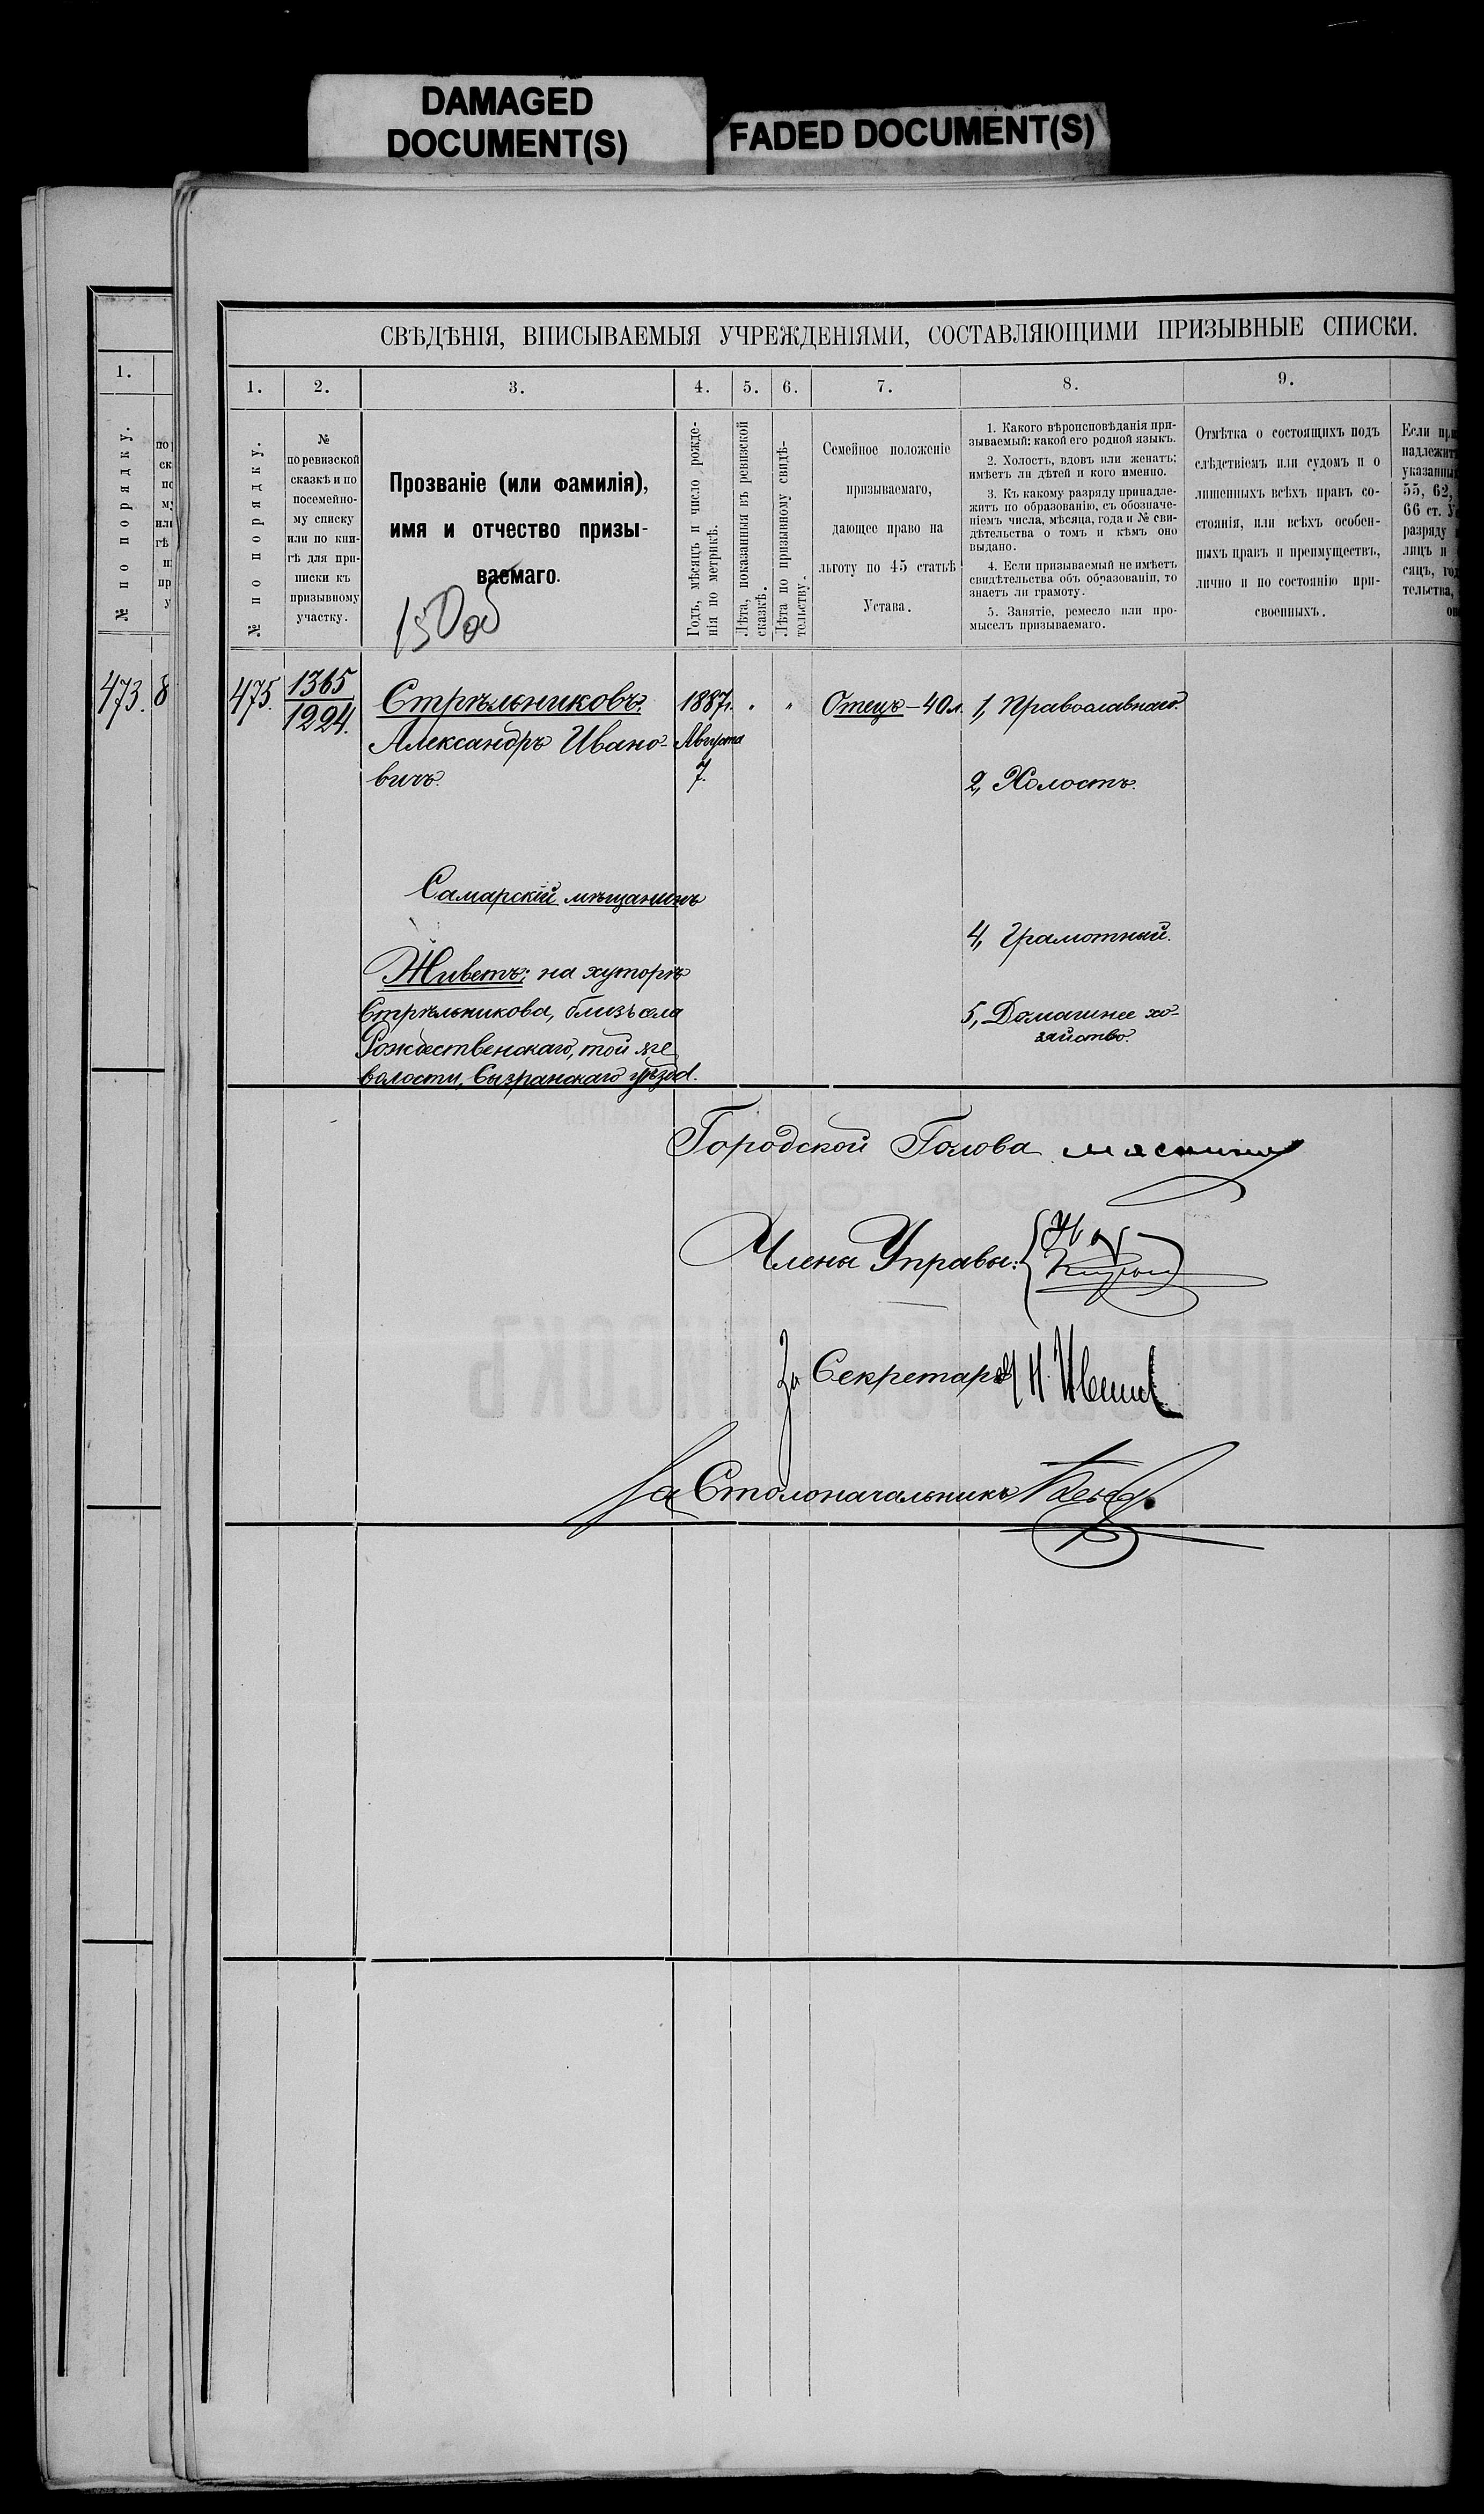 DAMAGED
DOCUMENT(S)
FADED DOCUMENT(S)
СВѢДѢНІЯ, ВПИСЫВАЕМЫЯ УЧРЕЖДЕНІЯМИ, СОСТАВЛЯЮЩИМИ ПРИЗЫВНЫЕ СПИСКИ.
1.
№ по порядку.
473.
8
1.
№ по порядку.
2.
№
по ревизской
сказкѣ и по
посемейно-
му списку
или по кни-
гѣ для при-
писки къ
призывному
участку.
3.
Прозваніе (или фамилія),
имя и отчество призы-
ваемаго.
4.
Годъ, мѣсяцъ и число рожде-
нія по метрикѣ.
5.
Лѣта, показанныя въ ревизской
сказкѣ.
6.
Лѣта по призывному свидѣ-
тельству.
7.
Семейное положеніе
призываемаго,
дающее право на
льготу по 45 статьѣ
Устава.
8.
1. Какого вѣроисповѣданія при-
зываемый: какой его родной языкъ.
2. Холостъ, вдовъ или женатъ;
имѣетъ ли дѣтей и кого именно.
3. Къ какому разряду принадле-
житъ по образованію, съ обозначе-
ніемъ числа, мѣсяца, года и № сви-
дѣтельства о томъ и кѣмъ оно
выдано.
4. Если призываемый не имѣетъ
свидѣтельства объ образованіи, то
знаетъ ли грамоту.
5. Занятіе, ремесло или про-
мыселъ призываемаго.
9.
Отмѣтка о состоящихъ подъ
слѣдствіемъ или судомъ и о
лишенныхъ всѣхъ правъ со-
стоянія, или всѣхъ особен-
ныхъ правъ и преимуществъ,
лично и по состоянію при-
своенныхъ.
Если
надлежит
указанны
55, 62,
66 ст.
разряду
лицъ и
сяцъ, го
тельства,
475.
1365
1224.
Стрѣльниковъ.
Александръ Ивано-
вичъ.
Самарскій мѣщанинъ
Живетъ: на хуторѣ
Стрѣльникова, близъ села
Рождественскаго, той же
волости, Сызранскаго уѣзда.
1887г.
Августа
7.
"
"
Отецъ – 40 л.
1, Православнаго.
2, Холостъ.
4, Грамотный.
5, Домашнее хо-
зяйство.
Городской Голова
Члены Управы:
За Секретаря
За Столоначальникъ